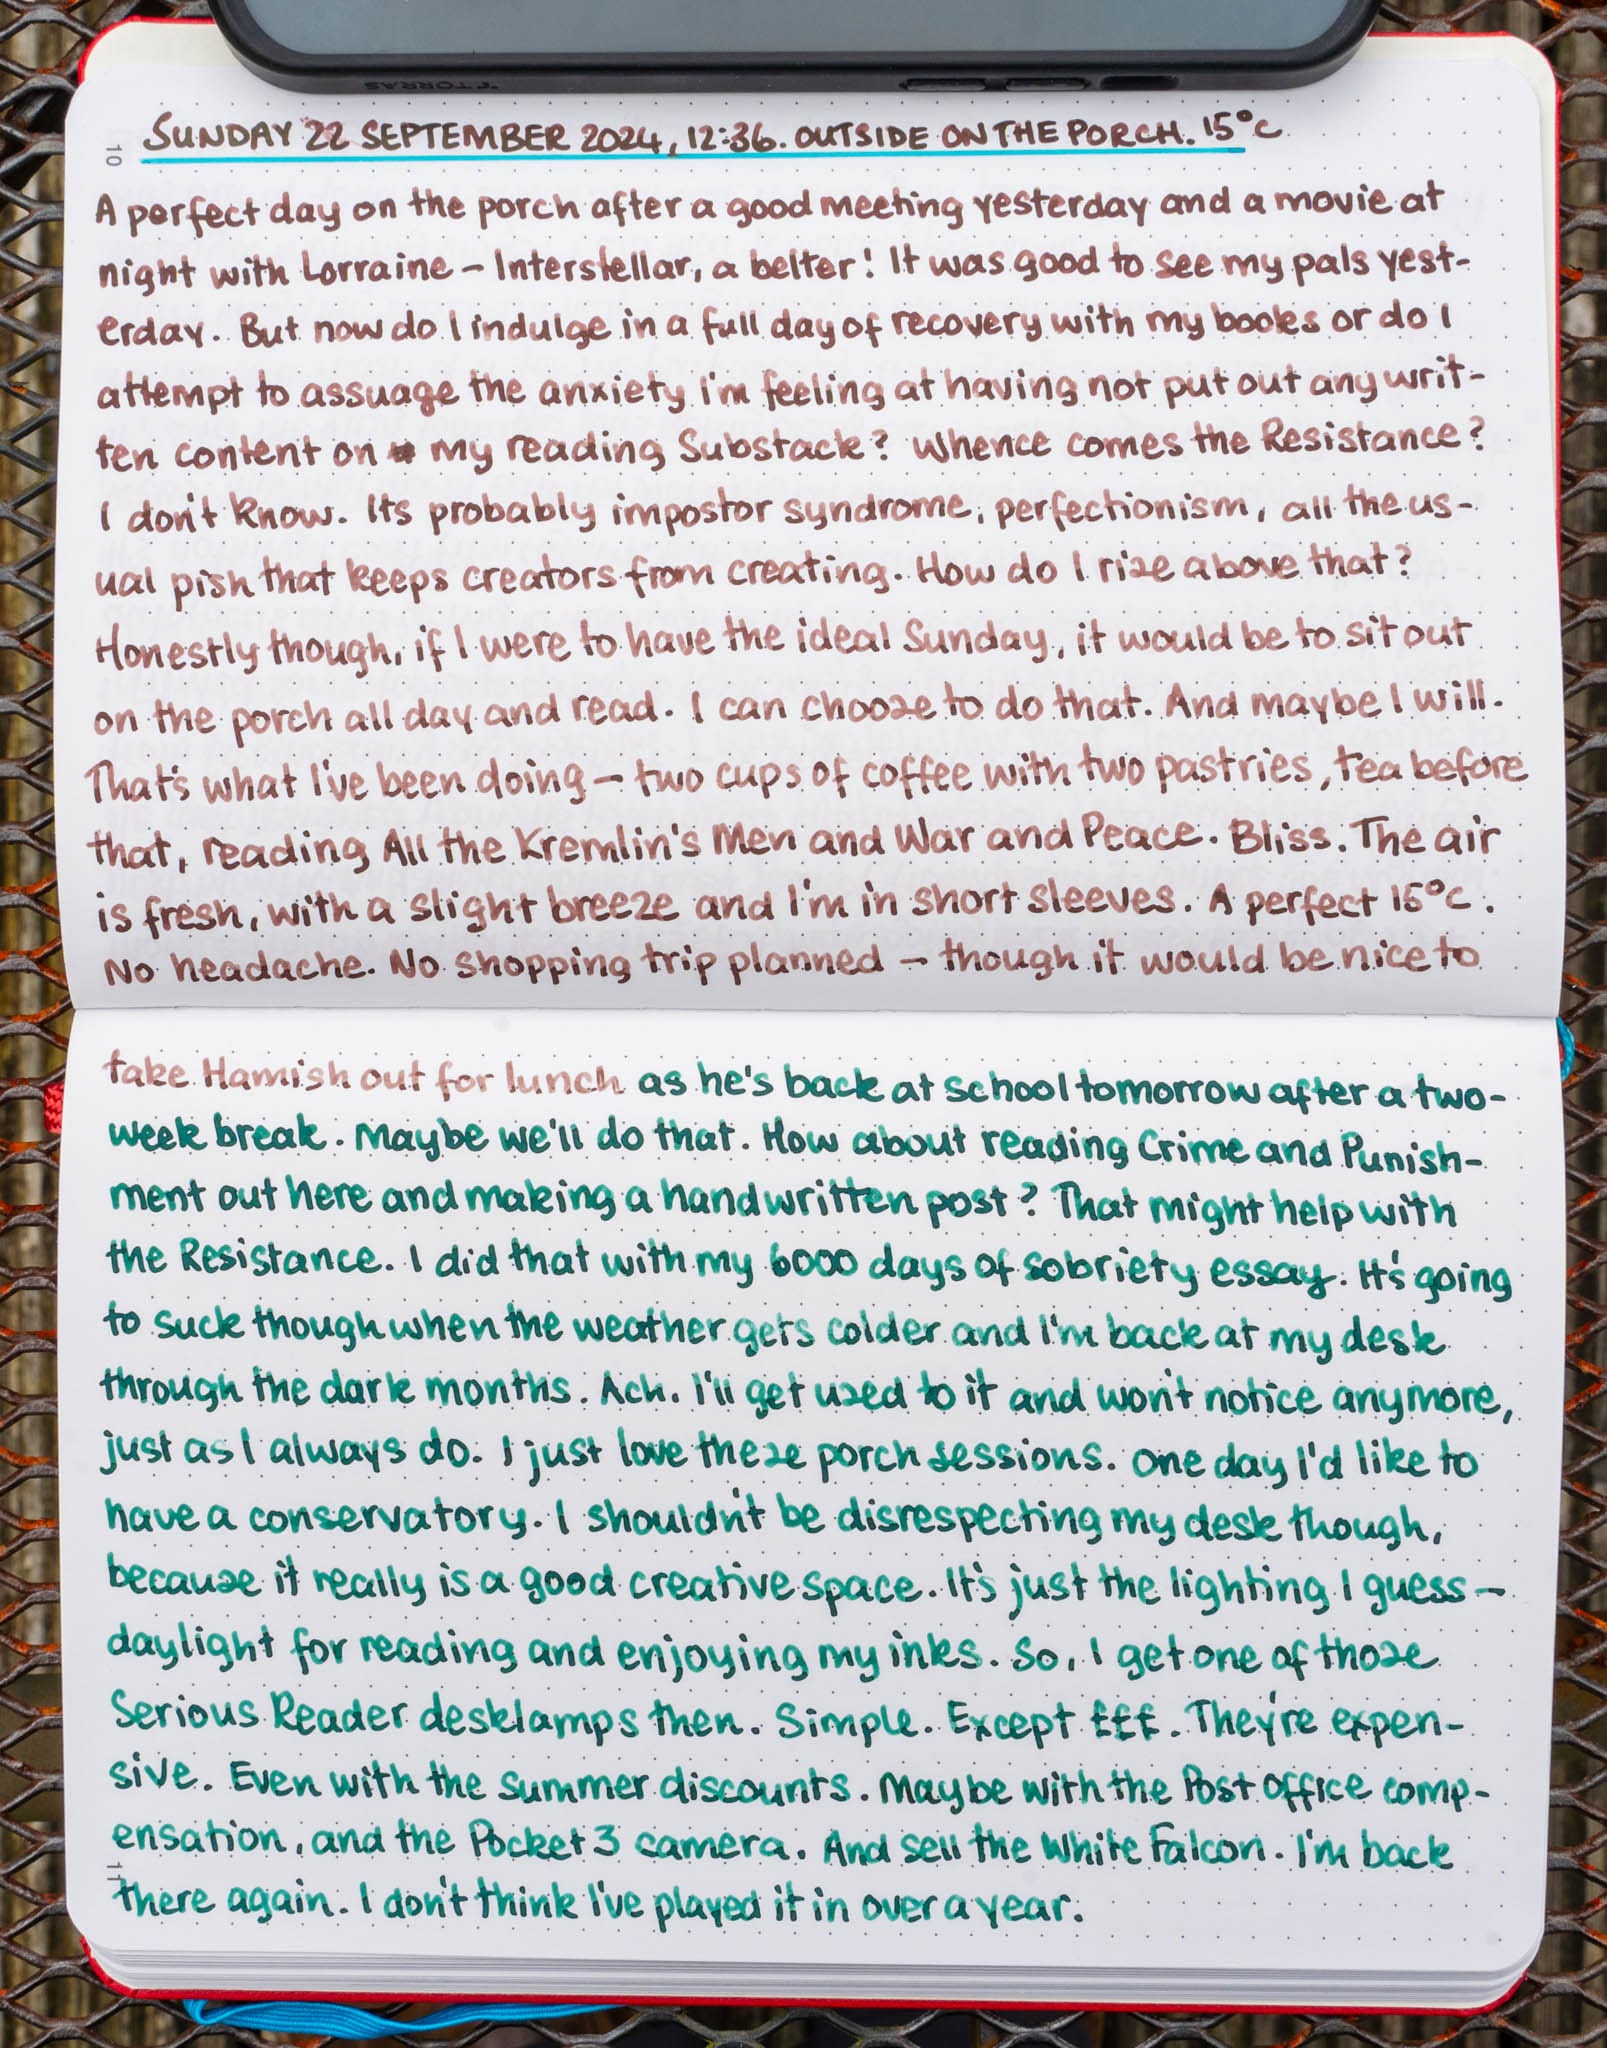 TORRAS
10
SUNDAY 22 SEPTEMBER 2024, 12:36. OUTSIDE ON THE PORCH. 15°C
A perfect day on the porch after a good meeting yesterday and a movie at
night with Lorraine – Interstellar, a belter! It was good to see my pals yest-
erday. But now do I indulge in a full day of recovery with my books or do I
attempt to assuage the anxiety I'm feeling at having not put out any writ-
ten content on my reading Substack? Whence comes the Resistance?
I don't know. Its probably impostor syndrome, perfectionism, all the us-
ual pish that keeps creators from creating. How do I rise above that?
Honestly though, if I were to have the ideal Sunday, it would be to sit out
on the porch all day and read. I can choose to do that. And maybe I will.
That's what I've been doing – two cups of coffee with two pastries, tea before
that, reading All the Kremlin's Men and War and Peace. Bliss. The air
is fresh, with a slight breeze and I'm in short sleeves. A perfect 15°C.
No headache. No shopping trip planned – though it would be nice to
take Hamish out for lunch as he's back at school tomorrow after a two-
week break. Maybe we'll do that. How about reading Crime and Punish-
ment out here and making a handwritten post? That might help with
the Resistance. I did that with my 6000 days of sobriety essay. It's going
to suck though when the weather gets colder and I'm back at my desk
through the dark months. Ach. I'll get used to it and won't notice anymore,
just as I always do. I just love these porch sessions. One day I'd like to
have a conservatory. I shouldn't be disrespecting my desk though,
because it really is a good creative space. It's just the lighting I guess –
daylight for reading and enjoying my inks. So, I get one of those
Serious Reader desklamps then. Simple. Except £££. They're expen-
sive. Even with the summer discounts. Maybe with the Post Office comp-
ensation, and the Pocket 3 camera. And sell the White Falcon. I'm back
there again. I don't think I've played it in over a year.
11